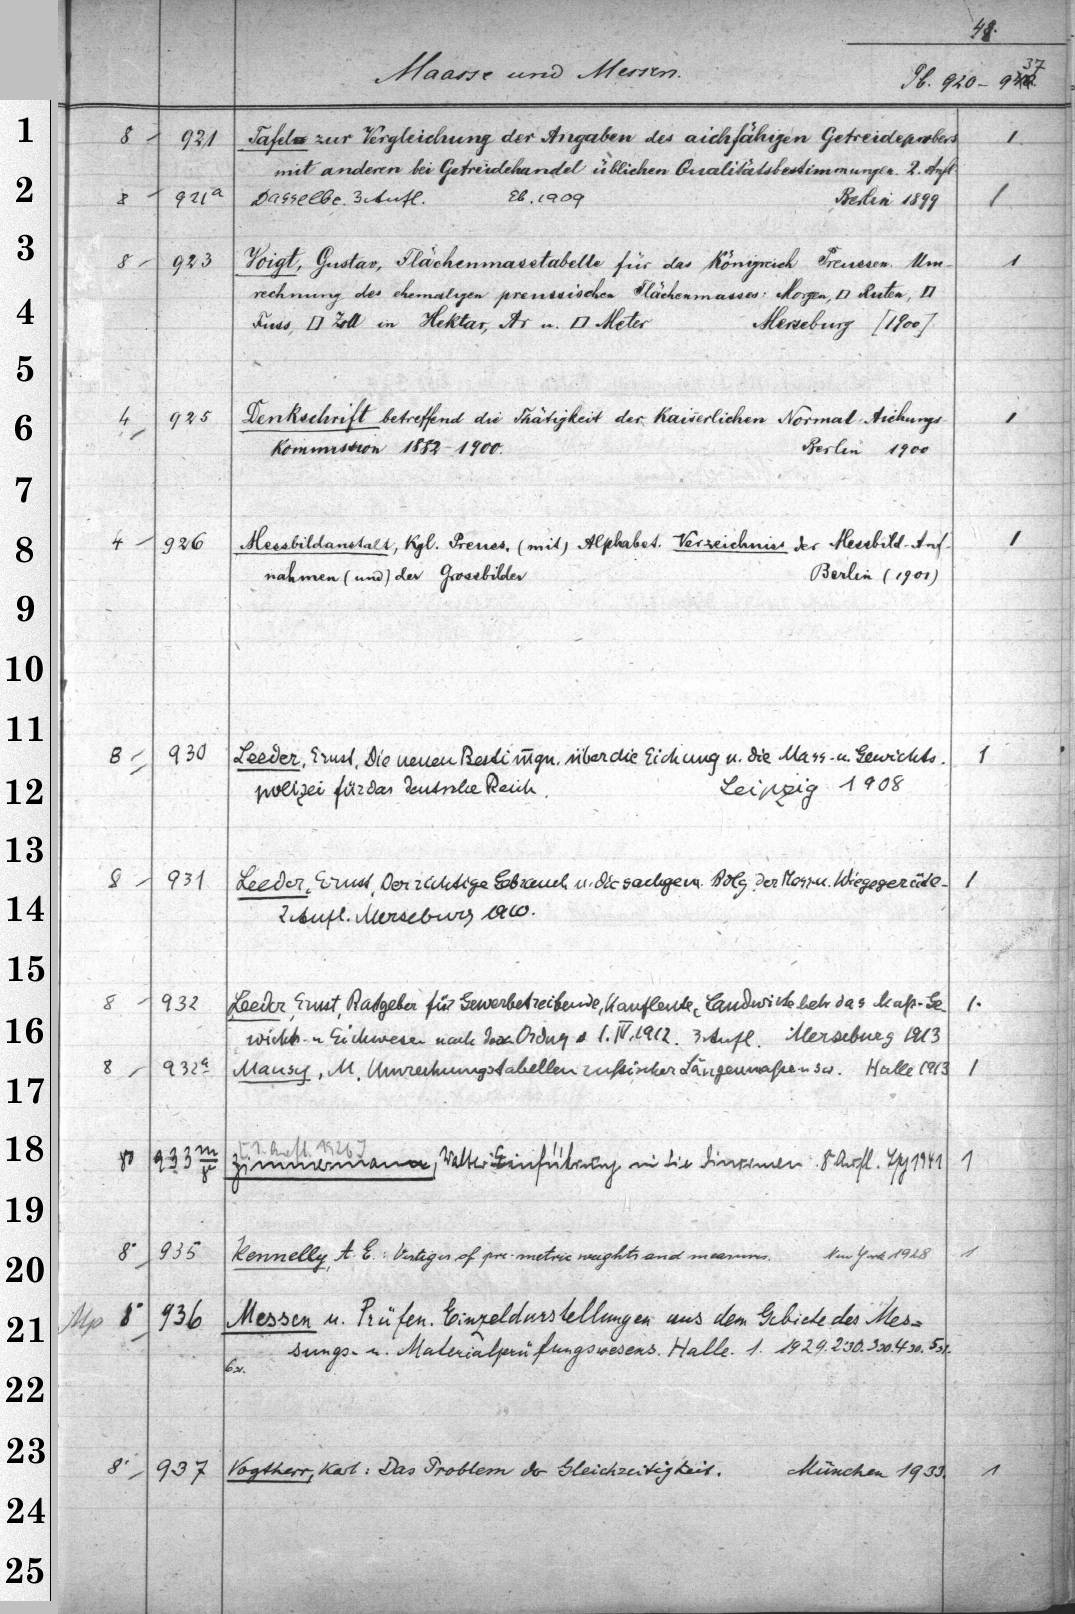 48.
Maasse und Messen.
Pb. 920 - 937
1
8 - 921 Tafeln zur Vergleichung der Angaben des aichfähigen Getreideprobers 1
mit anderen bei Getreidehandel üblichen Qualitätsbestimmungen. 2. Aufl.
2
8 - 921a Dasselbe. 3 Aufl. Eb. 1909 Berlin 1899 1
3
8 - 923 Voigt, Gustav, Flächenmasstabelle für das Königreich Preussen. Um- 1
rechnung des ehemaligen preussischen Flächenmasses: Morgen, □ Ruten, □
4
Fuss, □ Zoll in Hektar, Ar u. □ Meter Merseburg [1900]
5
6
4 - 925 Denkschrift betreffend die Thätigkeit der Kaiserlichen Normal-Aichungs- 1
Kommission 1882-1900. Berlin 1900
7
8
4 - 926 Messbildanstalt, Kgl. Preuss. (mit) Alphabet. Verzeichniss der Messbild-Auf- 1
nahmen (und) der Grossbilder Berlin (1901)
9
10
11
8 - 930 Leeder, Ernst, Die neuen Bestimgn. über die Eichung u. die Mass- u. Gewichts- 1
12
polizei für das Deutsche Reich. Leipzig 1908
13
8 - 931 Leeder, Ernst, Der richtige Gebrauch u. die sachgem. der Mess- u. Wiegegeräte. 1
14
2 Aufl. Merseburg 1910.
15
8 - 932 Leeder, Ernst, Ratgeber für Gewerbetreibende, Kaufleute, Landwirte betr. das Maß- Ge- 1.
16
wichts- u Eichwesen nach Ordng 1. IV. 1912. 3 Aufl. Merseburg 1913
17
8 - 932a M. Umrechnungstabellen russischer Längenmaße usw. Halle 1913 1
18
[1. Aufl. 1926]
8° 933 m/8 Zimmermann, Walter: Einführung in die Dinormen. 8 Aufl. Lpz 1941 1
19
8° 935 Kennelly, A. E.: Vestiges of pre-metric weights and measures. New York 1928 1
20
21
8° 936 Messen u. Prüfen. Einzeldarstellungen aus dem Gebiete des Mes-
sungs- u. Materialprüfungswesens. Halle. 1. 1929. 2 30. 3 30. 4 30. 5 31.
6 31.
22
23
8° - 937 Vogtherr, Karl: Das Problem der Gleichzeitigkeit. München 1933. 1
24
25